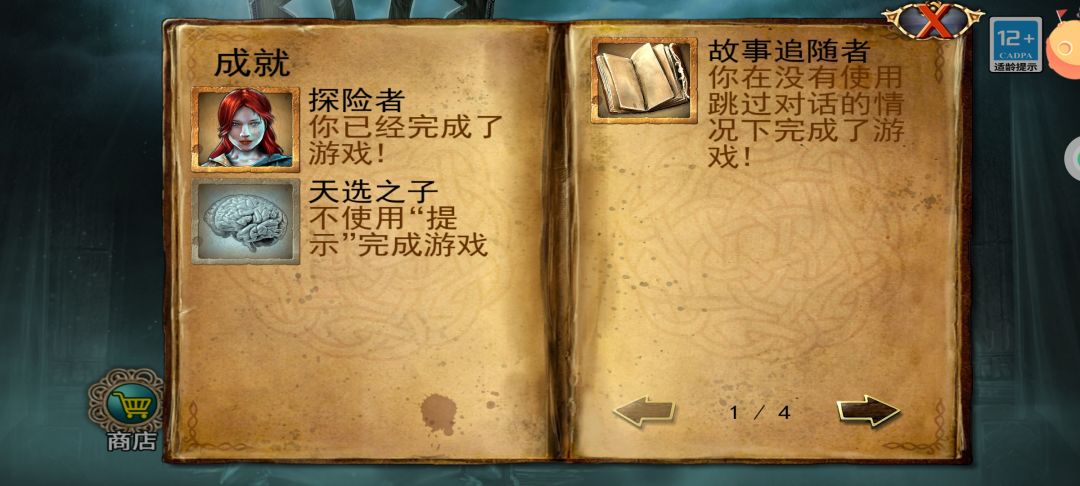 成就
探险者
你已经完成了
游戏！
天选之子
不使用“提
示”完成游戏
故事追随者
你在没有使用
跳过对话的情
况下完成了游
戏！
1 / 4
X
12+
CADPA
适龄提示
商店